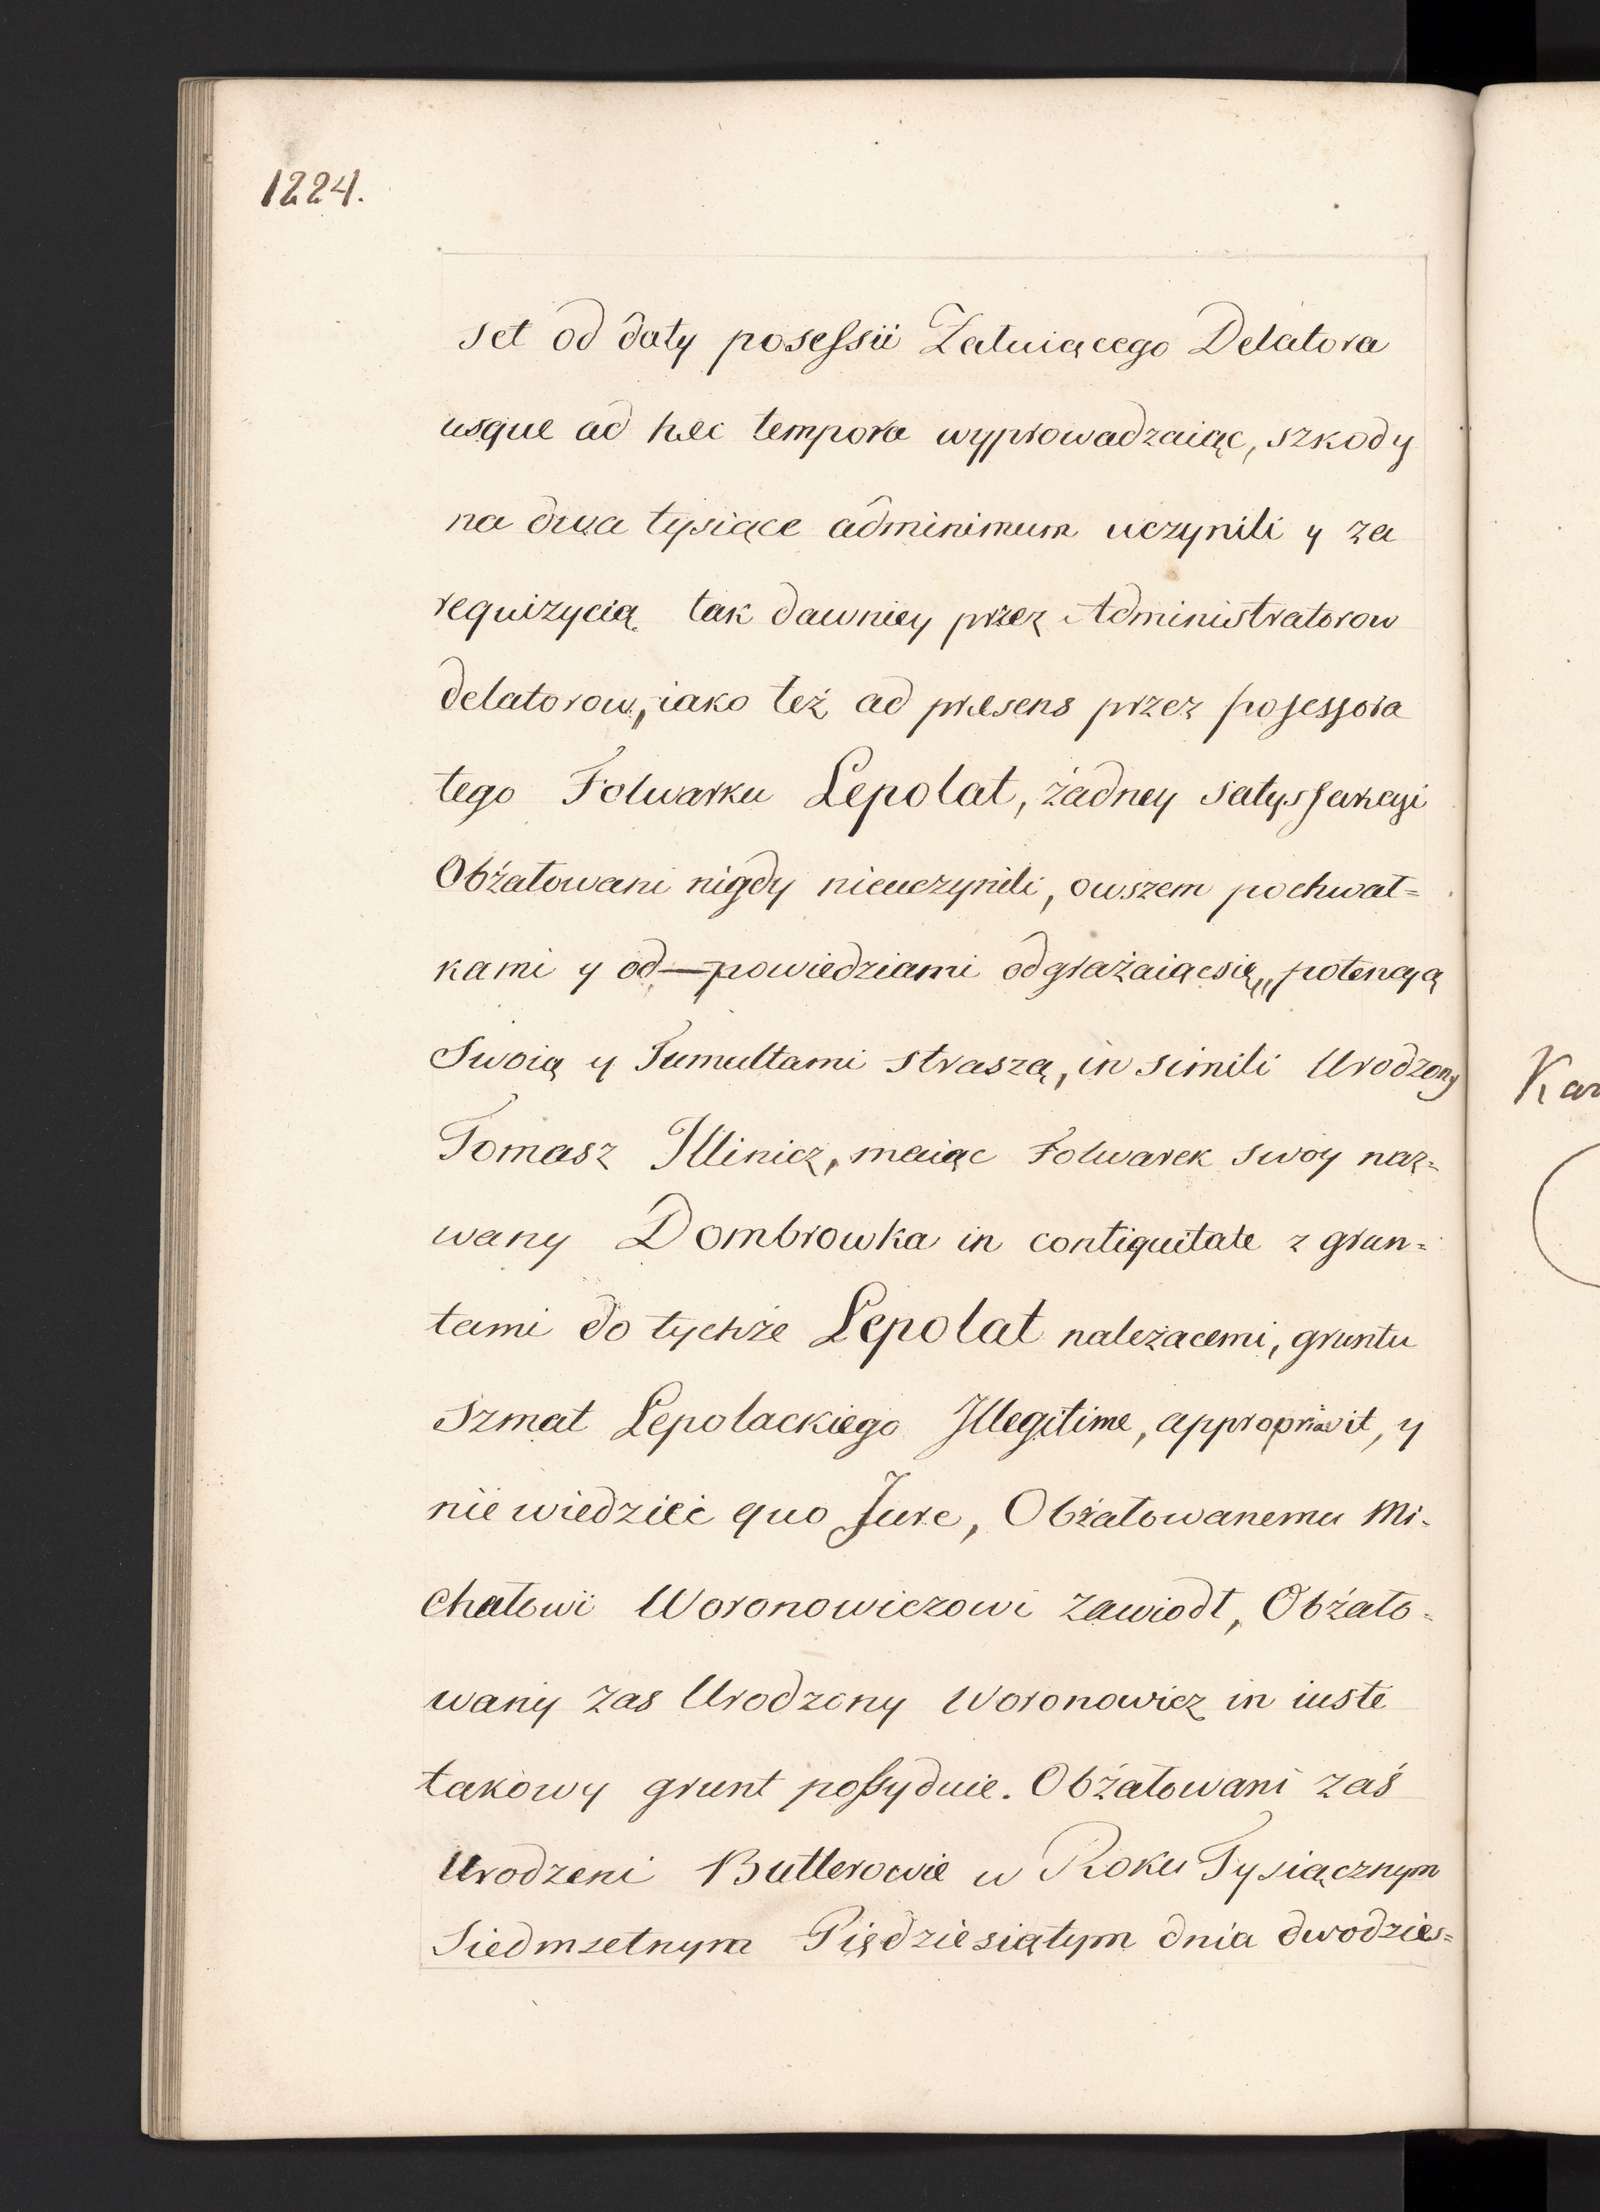 1224.
set od daty posessii Załuiącego Delatora
usque ad hæc tempora wyprowadzaiąc, szkody
na dwa tysiące adminimum uczynili y za
requizycią tak dawniey przez Administratorow
delatorow, iako też ad præsens przez possessora
tego Folwarku Lepolat, żadney satysfakcyi
Obżałowani nigdy nieuczynili, owszem pochwał=
kami y od—powiedziami odgrażaiącsię, potencyą
Swoią y Tumultami straszą, in simili Urodzony
Tomasz Illinicz, maiąc Folwarek swoy naz=
wany Dombrowka in contiguitate z grun=
tami do tychże Lepolat należacemi, gruntu
Szmat Lepolackiego Illegitime, appropriavit, y
nie wiedzieć quo Jure, Obżałowanemu Mi=
chałowi Woronowiczowi zawiodł, Obżało=
wany zas Urodzony Woronowicz in iuste
takowy grunt possyduie. Obżałowani zaś
Urodzeni Butlerowie w Roku Tysiącznym
Siedmsetnym Piędziesiątym dnia dwodzies=
Kar